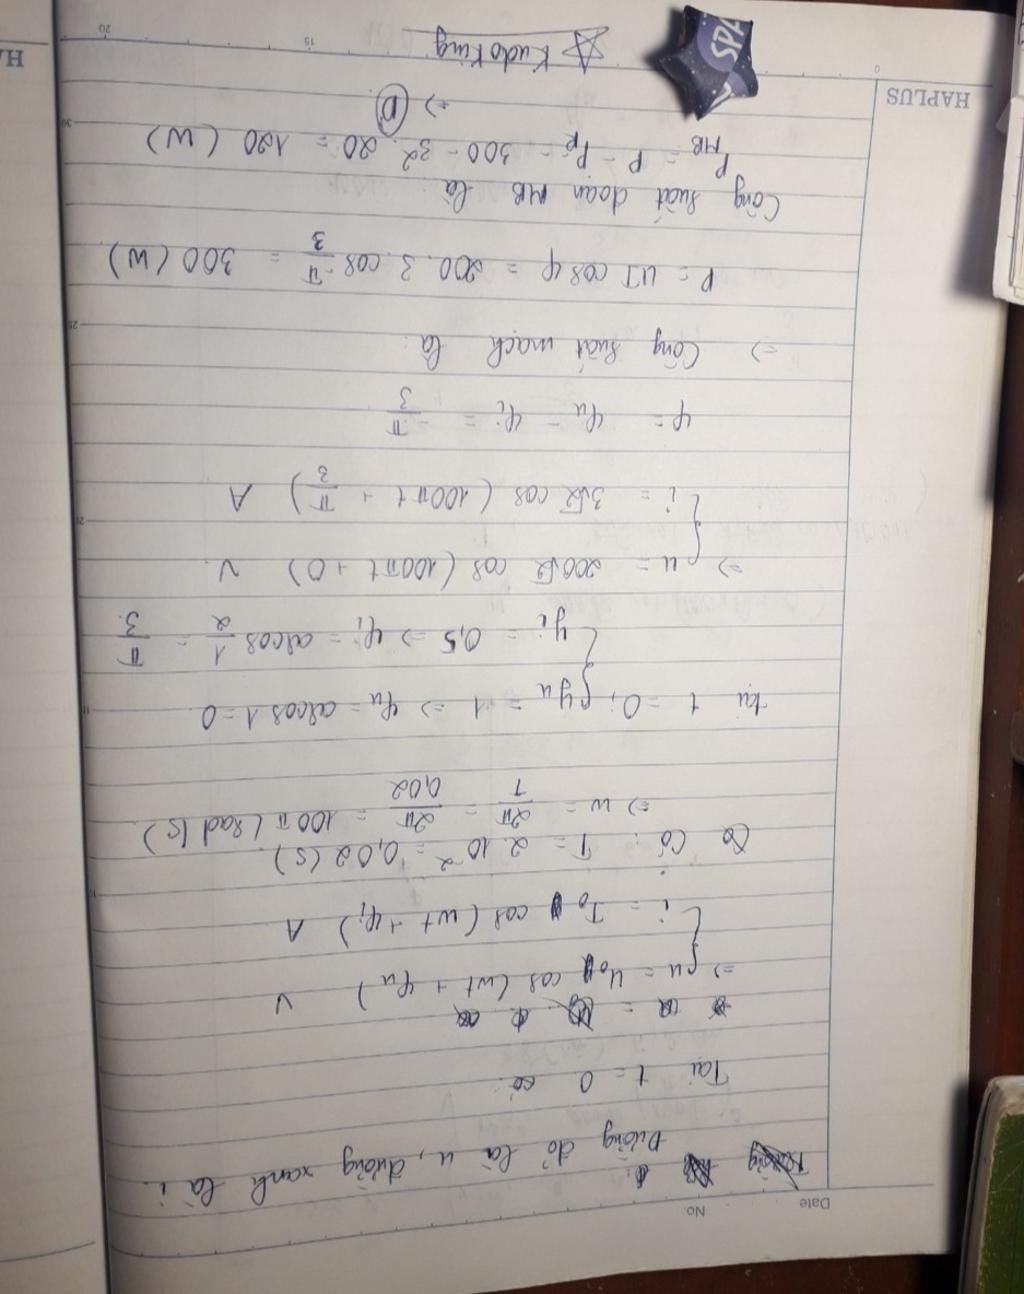 Date
No.
Đường đỏ là u, đường xanh là i.
Tại t = 0 có:
=> { u = U₀ cos (wt + φu) V
i = I₀ cos (wt + φi) A
Có: T = 2.10⁻² = 0,02 (s)
=> w = 2π/T = 2π/0,02 = 100π (rad/s)
tại t = 0; { yu = 1 => φu = arcos 1 = 0
yi = 0,5 => φi = arcos 1/2 = π/3.
=> { u = 200√2 cos (100πt + 0) V.
i = 3√2 cos (100πt + π/3) A
φ = φu - φi = -π/3
=> Công suất mạch là:
P = UI cos φ = 200.3.cos -π/3 = 300 (W)
Công suất đoạn MB là:
P_MB = P - P_R = 300 - 3².20 = 120 (W)
=> D
KudoKing
HAPLUS
SPA